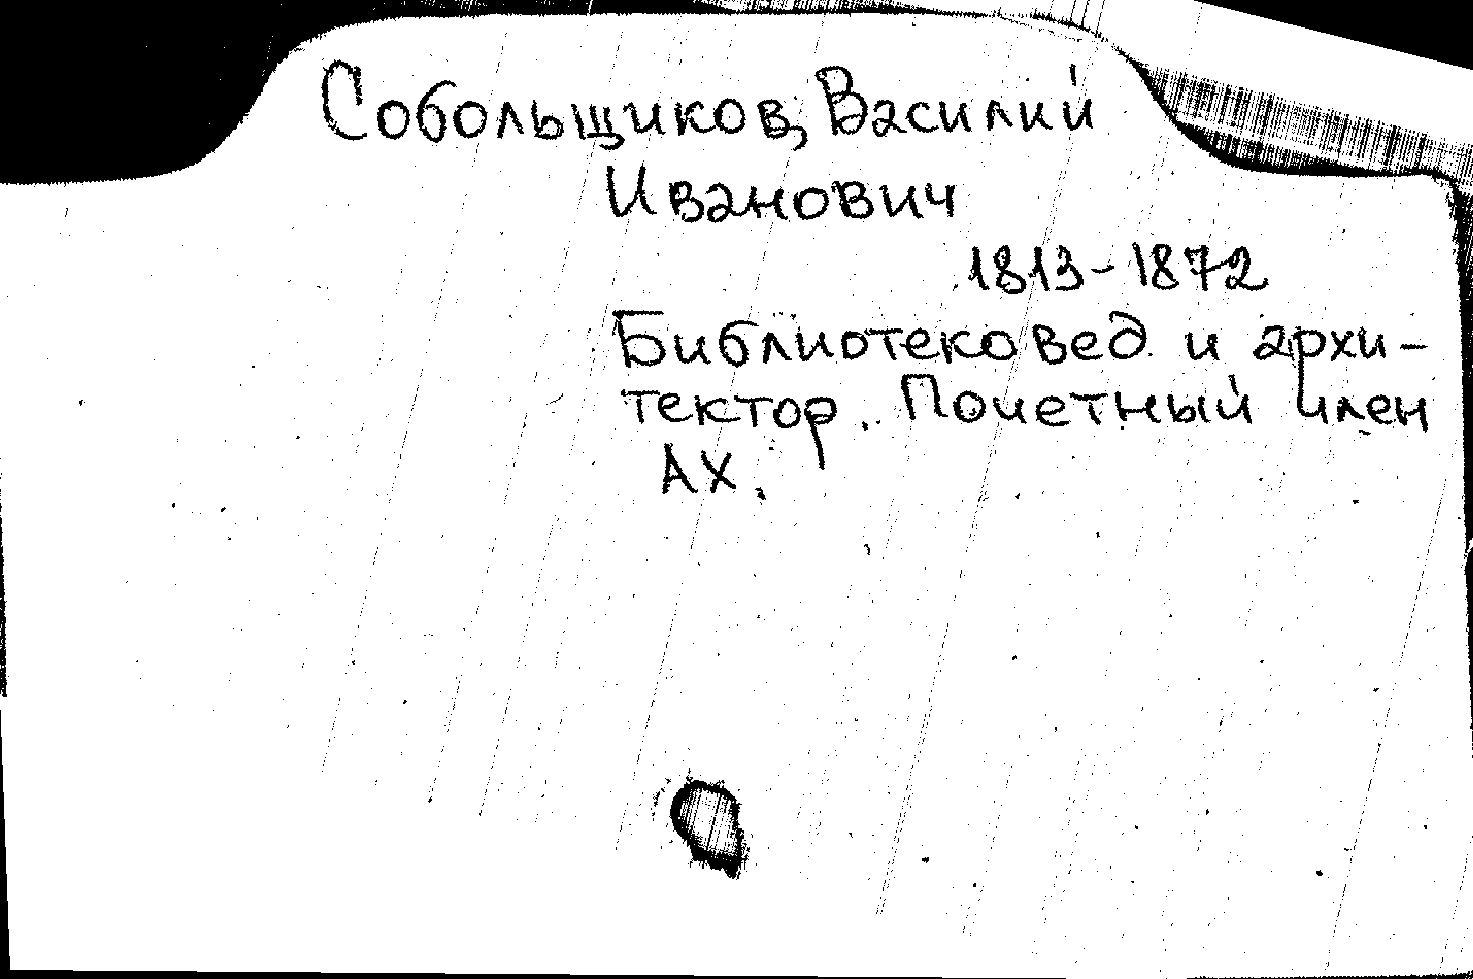 Собольщиков, Василий
Иванович
1813-1872
Библиотековед и архи-
тектор. Почетный член
АХ.